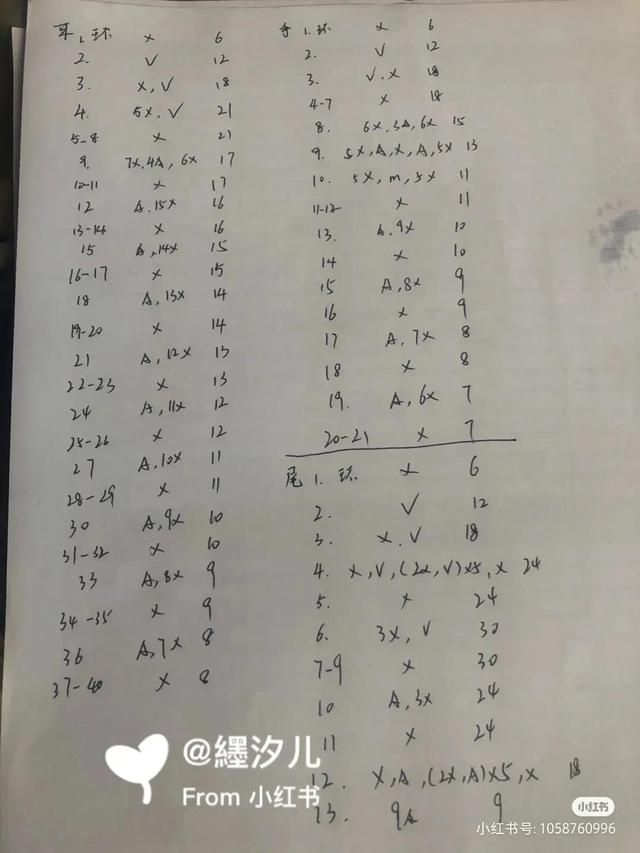 耳 1. 环 x 6
2. V 12
3. x, V 18
4. 5x, V 21
5-8 x 21
9. 7x, 4A, 6x 17
10-11 x 17
12 A, 15x 16
13-14 x 16
15 A, 14x 15
16-17 x 15
18 A, 13x 14
19-20 x 14
21 A, 12x 13
22-23 x 13
24 A, 11x 12
25-26 x 12
27 A, 10x 11
28-29 x 11
30 A, 9x 10
31-32 x 10
33 A, 8x 9
34-35 x 9
36 A, 7x 8
37-40 x 8
手 1. 环 x 6
2. V 12
3. V, x 18
4-7 x 18
8. 6x, 3A, 6x 15
9. 5x, A, x, A, 5x 13
10. 5x, m, 5x 11
11-12 x 11
13. A, 9x 10
14 x 10
15 A, 8x 9
16 x 9
17 A, 7x 8
18 x 8
19. A, 6x 7
20-21 x 7
尾 1. 环 x 6
2. V 12
3. x, V 18
4. x, V, (2x, V)x5, x 24
5. x 24
6. 3x, V 30
7-9 x 30
10 A, 3x 24
11 x 24
12. x, A, (2x, A)x5, x 18
13. 9A 9
@纆汐儿
From 小红书
小红书
小红书号: 1058760996